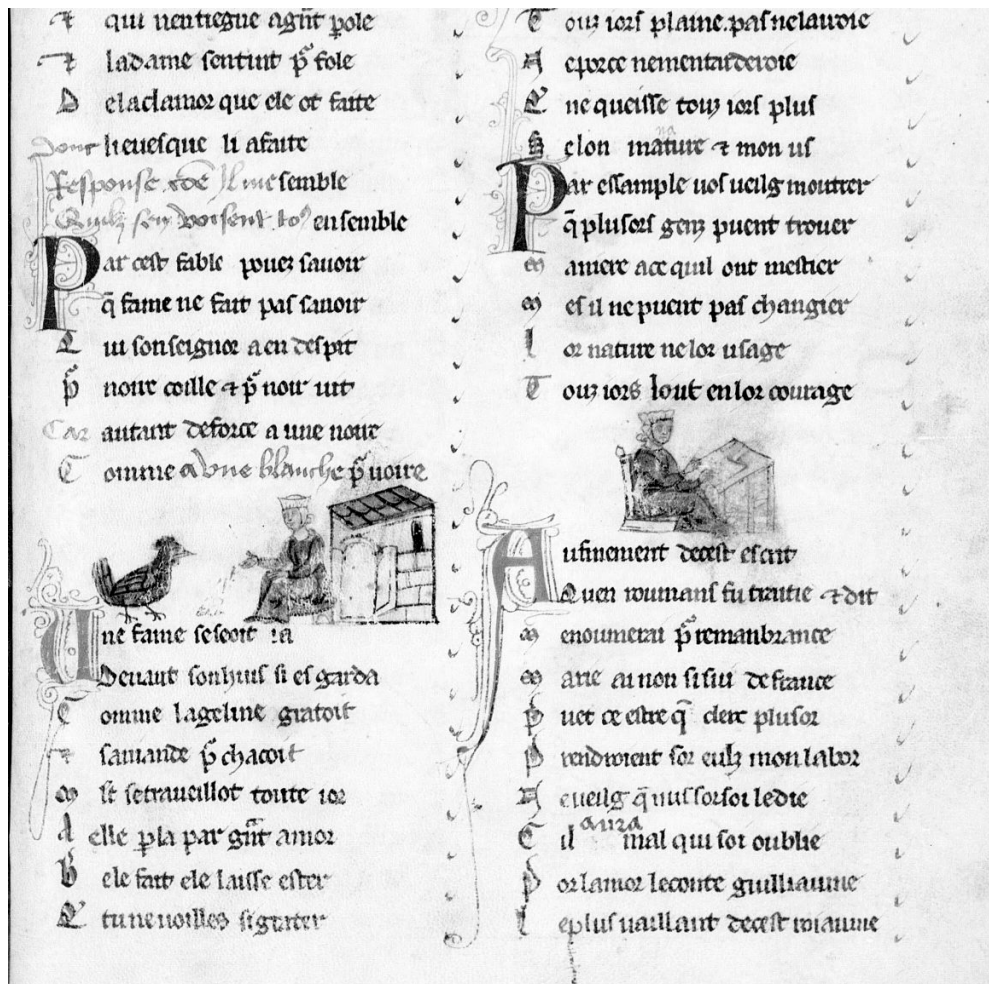 ⁊ qui uentiegne agñt pole
⁊ ladame sentint p̃ fole
D elaclamor que ele ot faite
Dont lieuesque li afaite
Response
semble
ensemble
P ar cest fable pouez sauoir
q̃ fame ne fait pas sauoir
Q ui son seignor a en despit
p̃ noire coille ⁊ p̃ noir uit
Car autant deforce a une noire
C omme a vne blanche p̃ uoire
U ne fame seseoit ia
Deuant son huis si esgarda
C omme la geline gratoit
⁊ sa uiande p̃ chacoit
M lt setraueillot toute ior
A elle pla par gñt amor
B ele fait ele laisse ester
Q tu ne uoilles si grater
T ouz iors plaine. pas nelauroie
A eporce nementarderoie
Q ne queisse touz iors plus
S elon ma nature ⁊ mon us
P ar essample uos ueilg moutrer
q̃ plusors genz puent trouer
M aniere ace quil ont mestier
M es il ne puent pas changier
L or nature ne lor usage
T ouz iors lont en lor courage
A ufinement decest escrit
Quen roumans fu traitie ⁊ dit
M enoumerai p̃ remanbrance
M arie ai non si sui de france
P uet ce estre q̃ clerc plusor
P rendroient sor eulz mon labor
N eueilg q̃ nus sor soi le die
C il aura mal qui soi oublie
P or lamor le conte guilliaume
L e plus uaillant decest roiaume